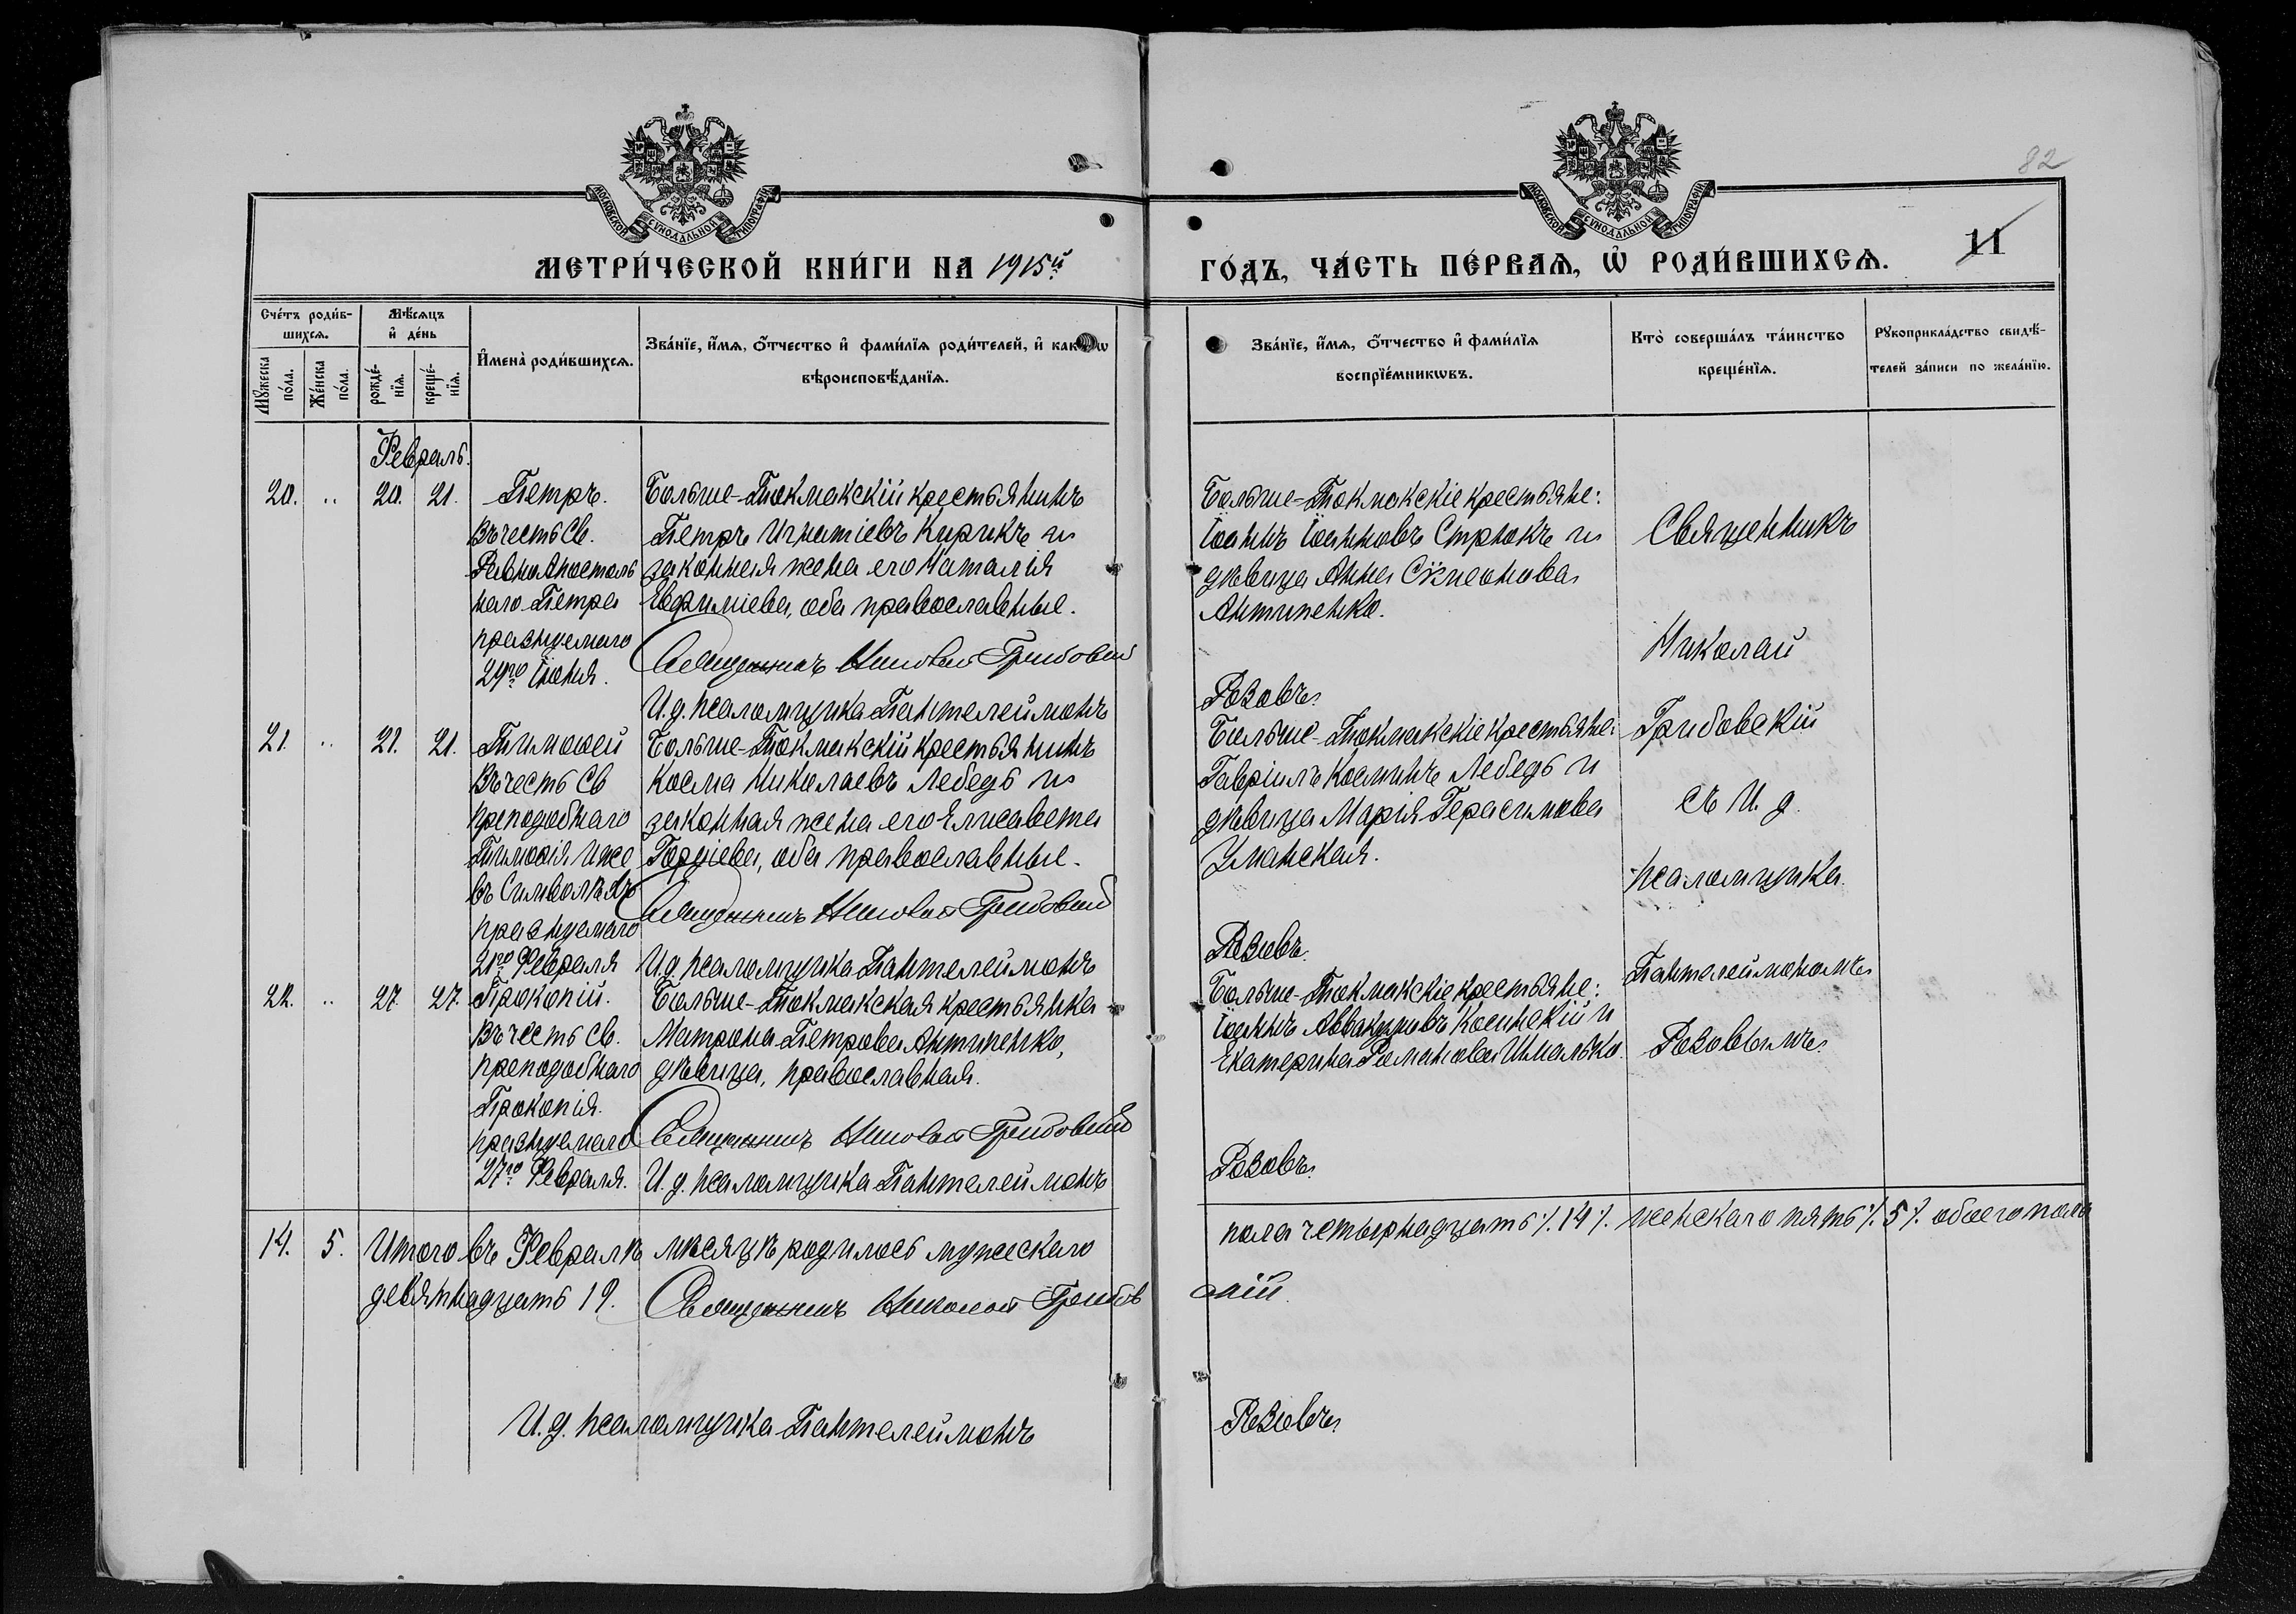 82
МОСКОВСКОЙ СУНОДАЛЬНОЙ ТИПОГРАФІИ
МОСКОВСКОЙ СУНОДАЛЬНОЙ ТИПОГРАФІИ
МЕТРИ́ЧЕСКОЙ КНИ́ГИ НА 1915й
ГО́ДЪ, ЧА́СТЬ ПЕ́РВАѦ, Ѡ҆ РОДИ́ВШИХСѦ.
11
Сче́тъ роди́в-
шихсѧ.
Мꙋ́жеска
по́ла.
Же́нска
по́ла.
Мѣ́сѧцъ
и҆ де́нь
рожде́-
нїѧ.
креще́-
нїѧ.
И҆мена̀ роди́вшихсѧ.
Зва́нїе, и҆́мѧ, ѻ҆́тчество и҆ фами́лїѧ роди́телей, и҆ как
вѣроисповѣ́данїѧ.
Зва́нїе, и҆́мѧ, ѻ҆́тчество и҆ фами́лїѧ
воспрїе́мникѡвъ.
Кто̀ соверша́лъ та́инство
креще́нїѧ.
Рꙋкоприкла́дство свидѣ́-
телей за́писи по жела́нїю.
Февраль.
20. " 20. 21.
Петръ.
Въ честь Св.
РавноАпостоль
наго Петра
празнуемаго
29го Іюня.
Больше-Токмакскій крестьянинъ
Петръ Игнатіевъ Кирикъ и
законная жена его Наталія
Евфиміева, оба православные.
Священникъ Николай Грибовскій
И. д. псаломщика Пантелеймонъ
Больше-Токмакскіе крестьяне:
Іоаннъ Іоанновъ Стрюкъ и
дѣвица Анна Сѵмеонова
Антипенко.
Розовъ
21. " 21. 21.
Тимоѳей
Въ честь Св
преподобнаго
Тимоѳія иже
въ Символѣхъ
празнуемаго
21го Февраля
Больше-Токмакскій крестьянинъ
Косма Николаевъ Лебедь и
законная жена его Елисавета
Гордіева, оба православные.
Священникъ Николай Грибовскій
И. д. псаломщика Пантелеймонъ
Больше-Токмакскіе крестьяне:
Гавріилъ Косминъ Лебедь и
дѣвица Марія Герасимова
Уманская.
Розовъ
22. " 27 27.
Прокопій.
Въ честь Св.
преподобнаго
Прокопія.
празнуемаго
27го Февраля.
Больше-Токмакская крестьянка
Матрона Петрова Антипенко,
дѣвица, православная.
Священникъ Николай Грибовскій
И. д. псаломщика Пантелеймонъ
Больше-Токмакскіе крестьяне:
Іоаннъ Аввакумовъ Косинскій и
Екатерина Романова Шмалько.
Розовъ
Священникъ
Николай
Грибовскій
съ И. д.
псаломщика
Пантелеймономъ
Розовымъ
14. 5. Итого въ Февралѣ мѣсяцѣ родилось мужескаго
пола четырнадцать %. 14 %. женскаго пять %. 5 %. обоего пола
девятнадцать 19. Священникъ Николай Грибов
скій
И. д. псаломщика Пантелеймонъ
Розовъ